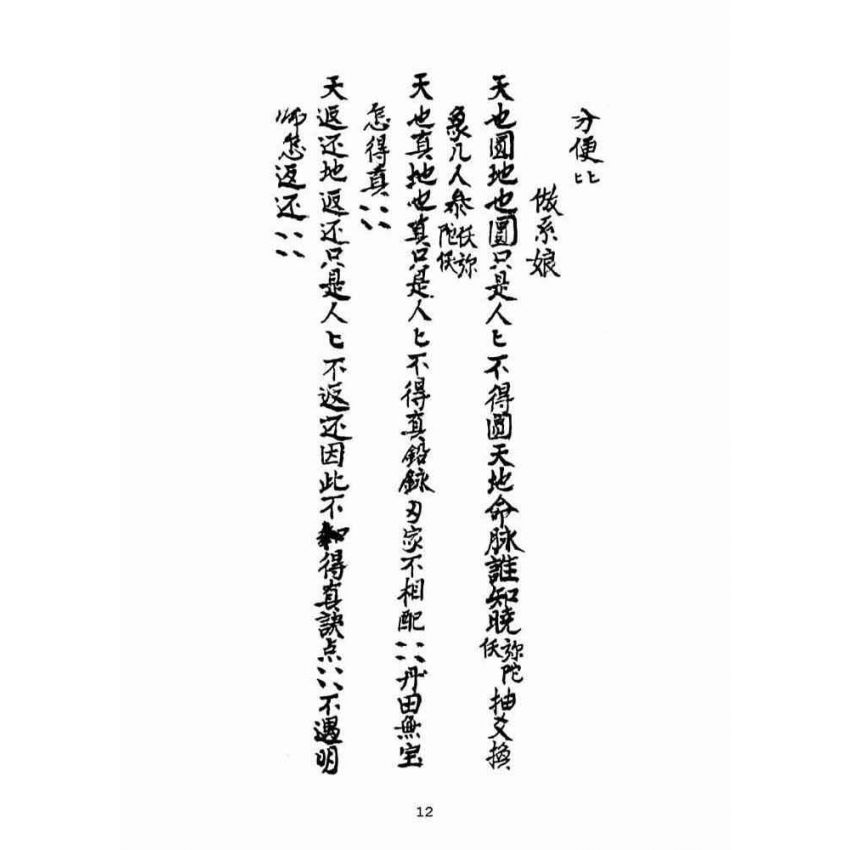 分便匕匕
做系娘
天也圆地也圓只是人匕不得圆天地命脉誰知曉弥陀仸抽爻換
象几人参仸弥陀仸
天也真地也真只是人匕不得真鉛銾刄家不相配⺀⺀丹田無宝
怎得真⺀⺀
天返还地返还只是人匕不返还因此不得真訣点⺀⺀不遇明
师怎返还⺀⺀
12